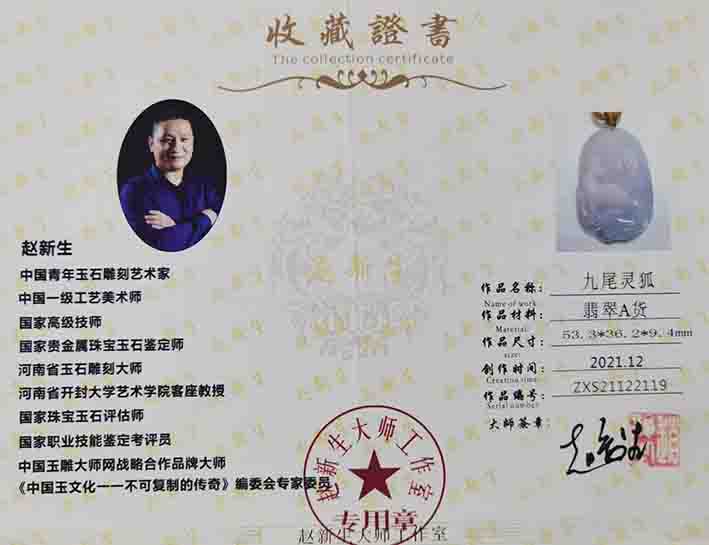 收藏證書
The collection certificate
赵新生
中国青年玉石雕刻艺术家
中国一级工艺美术师
国家高级技师
国家贵金属珠宝玉石鉴定师
河南省玉石雕刻大师
河南省开封大学艺术学院客座教授
国家珠宝玉石评估师
国家职业技能鉴定考评员
中国玉雕大师网战略合作品牌大师
《中国玉文化一一不可复制的传奇》编委会专家委员
作品名称: 九尾灵狐
Name of work:
作品材料: 翡翠A货
Material:
作品尺寸: 53.3*36.2*9.4mm
size:
创作时间: 2021.12
Creation time:
作品编号: ZXS21122119
Serial number:
大师签章:
赵新生大师工作室
专用章
赵新生大师工作室